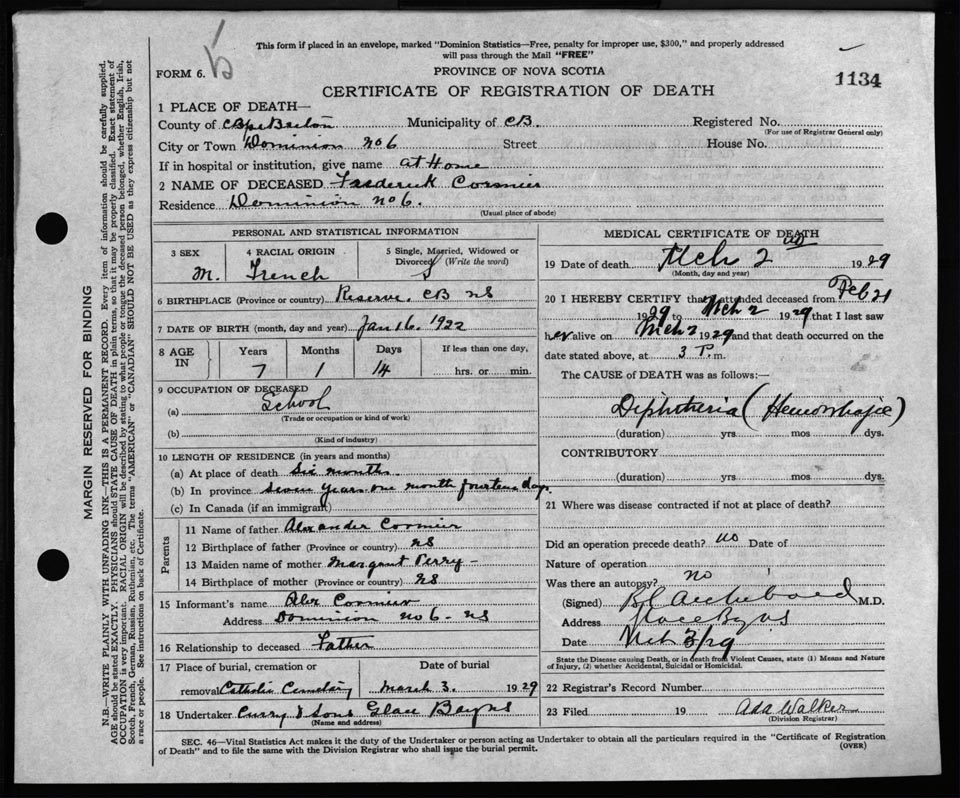 This form if placed in an envelope, marked "Dominion Statistics—Free, penalty for improper use, $300," and properly addressed
will pass through the Mail "FREE"
FORM 6.
PROVINCE OF NOVA SCOTIA
1134
CERTIFICATE OF REGISTRATION OF DEATH
1 PLACE OF DEATH—
County of Cape Breton Municipality of CB. Registered No.
(For use of Registrar General only)
City or Town Dominion No 6 Street House No.
If in hospital or institution, give name at Home
2 NAME OF DECEASED Frederick Cormier
Residence Dominion No 6.
(Usual place of abode)
PERSONAL AND STATISTICAL INFORMATION
3 SEX M.
4 RACIAL ORIGIN French
5 Single, Married, Widowed or
Divorced (Write the word) S
6 BIRTHPLACE (Province or country) Reserve. CB NS
7 DATE OF BIRTH (month, day and year) Jan 16. 1922
8 AGE IN Years 7 Months 1 Days 14 If less than one day, hrs. or min.
9 OCCUPATION OF DECEASED
(a) School
(Trade or occupation or kind of work)
(b)
(Kind of industry)
10 LENGTH OF RESIDENCE (in years and months)
(a) At place of death Six months
(b) In province seven years one month fourteen days.
(c) In Canada (if an immigrant)
Parents
11 Name of father Alexander Cormier
12 Birthplace of father (Province or country) NS
13 Maiden name of mother Margaret Perry
14 Birthplace of mother (Province or country) NS
15 Informant's name Alex Cormier
Address Dominion No 6. NS
16 Relationship to deceased Father
17 Place of burial, cremation or Date of burial
removal Catholic Cemetary March 3. 1929
18 Undertaker Curry & Sons Glace Bay NS
(Name and address)
MEDICAL CERTIFICATE OF DEATH
19 Date of death Mch 2nd 1929
(Month, day and year)
20 I HEREBY CERTIFY that I attended deceased from Feb 21
1929 to Mch 2 1929 that I last saw
her alive on Mch 2 1929 and that death occurred on the
date stated above, at 3 P. m.
The CAUSE OF DEATH was as follows:—
Diphtheria (Hemorrhagic)
(duration) yrs. mos dys.
CONTRIBUTORY
(duration) yrs. mos. dys.
21 Where was disease contracted if not at place of death?
Did an operation precede death? no Date of
Nature of operation
Was there an autopsy? no
(Signed) Archibald M.D.
Address Glace Bay NS
Date Mch 3/29
State the Disease causing Death, or in death from Violent Causes, state (1) Means and Nature
of Injury, (2) whether Accidental, Suicidal or Homicidal.
22 Registrar's Record Number
23 Filed 19 Ada Walker
(Division Registrar)
SEC. 46—Vital Statistics Act makes it the duty of the Undertaker or person acting as Undertaker to obtain all the particulars required in the "Certificate of Registration
of Death" and to file the same with the Division Registrar who shall issue the burial permit.
(OVER)
MARGIN RESERVED FOR BINDING
N.B.—WRITE PLAINLY WITH UNFADING INK—THIS IS A PERMANENT RECORD. Every item of information should be carefully supplied.
AGE should be stated EXACTLY. PHYSICIANS should STATE CAUSE OF DEATH in plain terms, so that it may be properly classified. Exact statement of
OCCUPATION is very important. RACIAL ORIGIN will be described by stating to what people or tongue the deceased person belonged, whether English, Irish,
Scotch, French, German, Russian, Ruthenian, etc. The terms "AMERICAN" or "CANADIAN" SHOULD NOT BE USED as they express citizenship but not
a race or people. See instructions on back of Certificate.